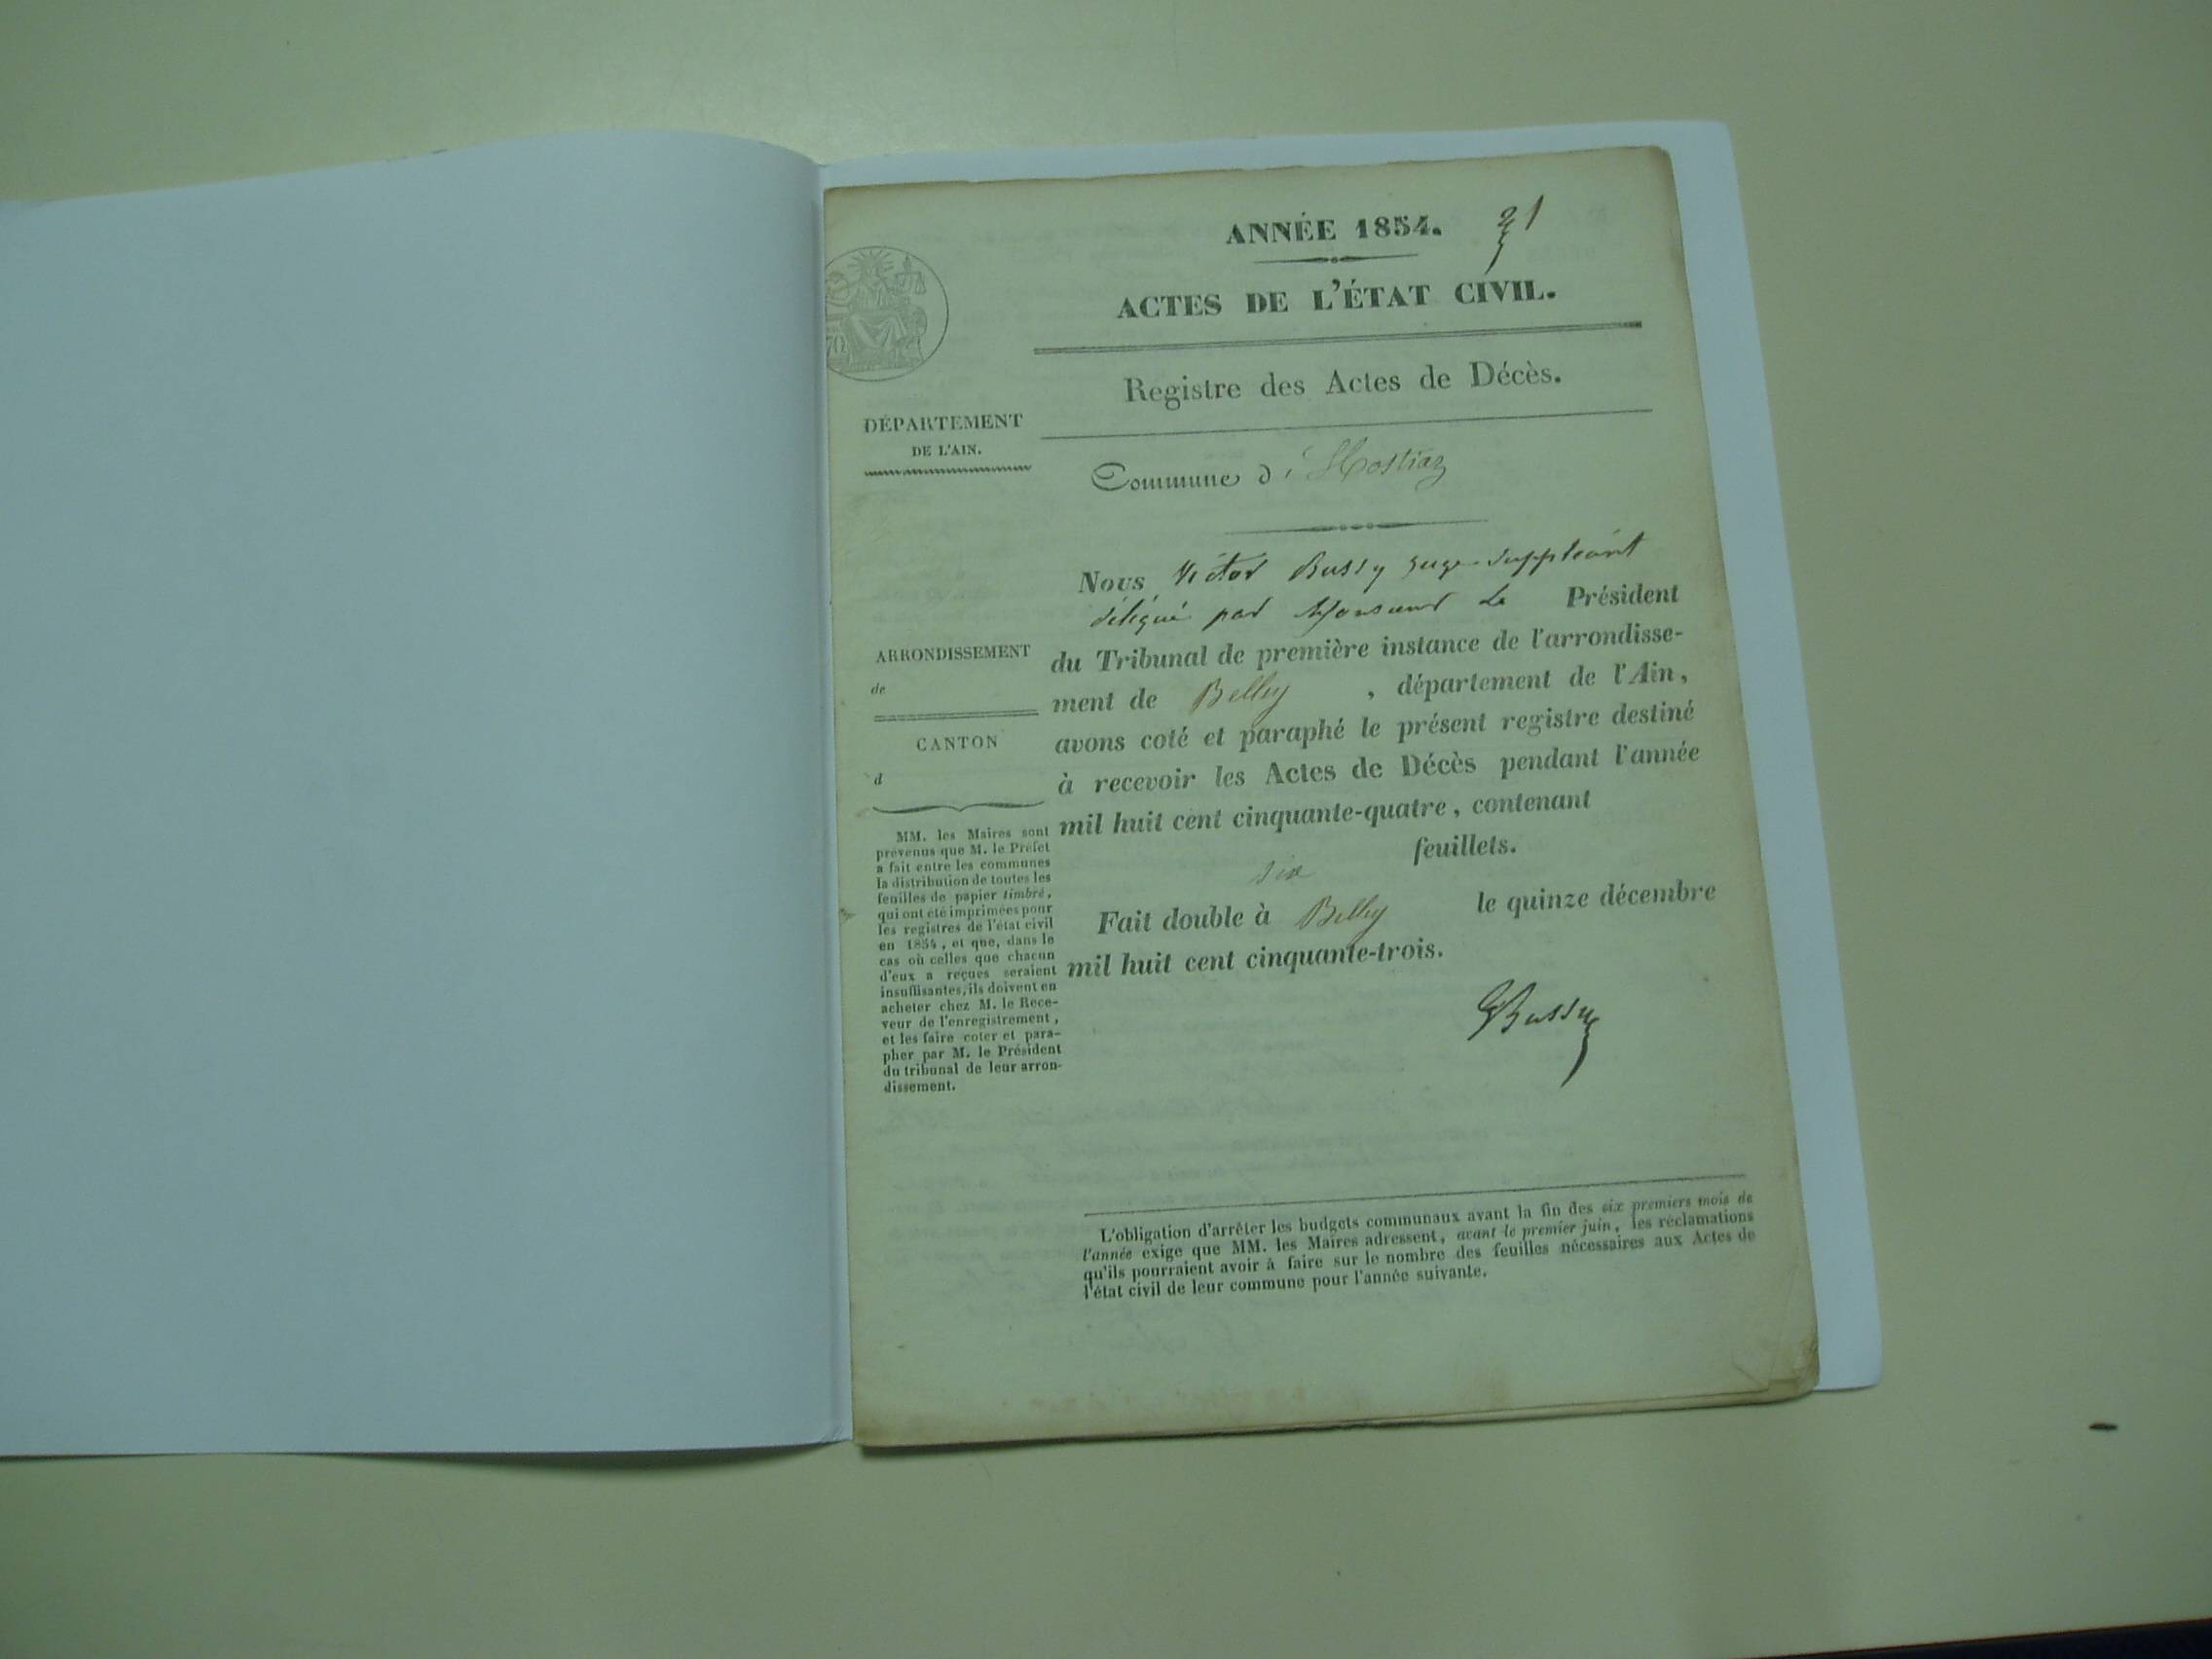 ANNÉE 1854.
ACTES DE L'ÉTAT CIVIL.
Registre des Actes de Décès.
70
DÉPARTEMENT
DE L'AIN.
Commune d'Hostiaz
Nous Victor Bussy juge suppléant
délégué par Monsieur Le Président
du Tribunal de première instance de l'arrondisse-
ment de Belley, département de l'Ain,
avons coté et paraphé le présent registre destiné
à recevoir les Actes de Décès pendant l'année
mil huit cent cinquante-quatre, contenant
six feuillets.
Fait double à Belley le quinze décembre
mil huit cent cinquante-trois.
Bussy
ARRONDISSEMENT
de
CANTON
d
MM. les Maires sont
prévenus que M. le Préfet
a fait entre les communes
la distribution de toutes les
feuilles de papier timbré,
qui ont été imprimées pour
les registres de l'état civil
en 1854, et que, dans le
cas où celles que chacun
d'eux a reçues seraient
insuffisantes, ils doivent en
acheter chez M. le Rece-
veur de l'enregistrement,
et les faire coter et para-
pher par M. le Président
du tribunal de leur arron-
dissement.
L'obligation d'arrêter les budgets communaux avant la fin des six premiers mois de
l'année exige que MM. les Maires adressent, avant le premier juin, les réclamations
qu'ils pourraient avoir à faire sur le nombre des feuilles nécessaires aux Actes de
l'état civil de leur commune pour l'année suivante.